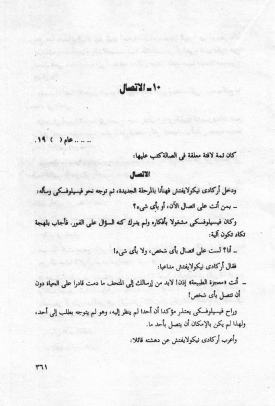 ١٠ - الاتصال
..... عام ( ) ١٩.
كان ثمة لافتة معلقة فى الصالة كتب عليها:
الاتصال
ودخل أركادى نيكولايفتش فهنأنا بالمرحلة الجديدة، ثم توجه نحو فيسيلوفسكى وسأله:
ـ بمن أنت على اتصال الآن، أو بأى شىء؟
وكان فيسيلوفسكى مشغولا بأفكاره ولم يدرك كنه السؤال على الفور. فأجاب بلهجة
تكاد تكون آلية:
ـ أنا؟ لست على اتصال بأى شخص، ولا بأى شىء!
فقال أركادى نيكولايفتش مداعبا:
ـ أنت «معجزة الطبيعة» إذن! لابد من إرسالك إلى المتحف ما دمت قادرا على الحياة دون
أن تتصل بأى شخص!
وراح فيسيلوفسكى يعتذر مؤكدا أن أحدا لم ينظر إليه، وهو لم يتوجه بطلب إلى أحد،
ولهذا لم يكن بالإمكان أن يتصل بأحد ما.
وأعرب أركادى نيكولايفتش عن دهشته قائلا:
٣٦١